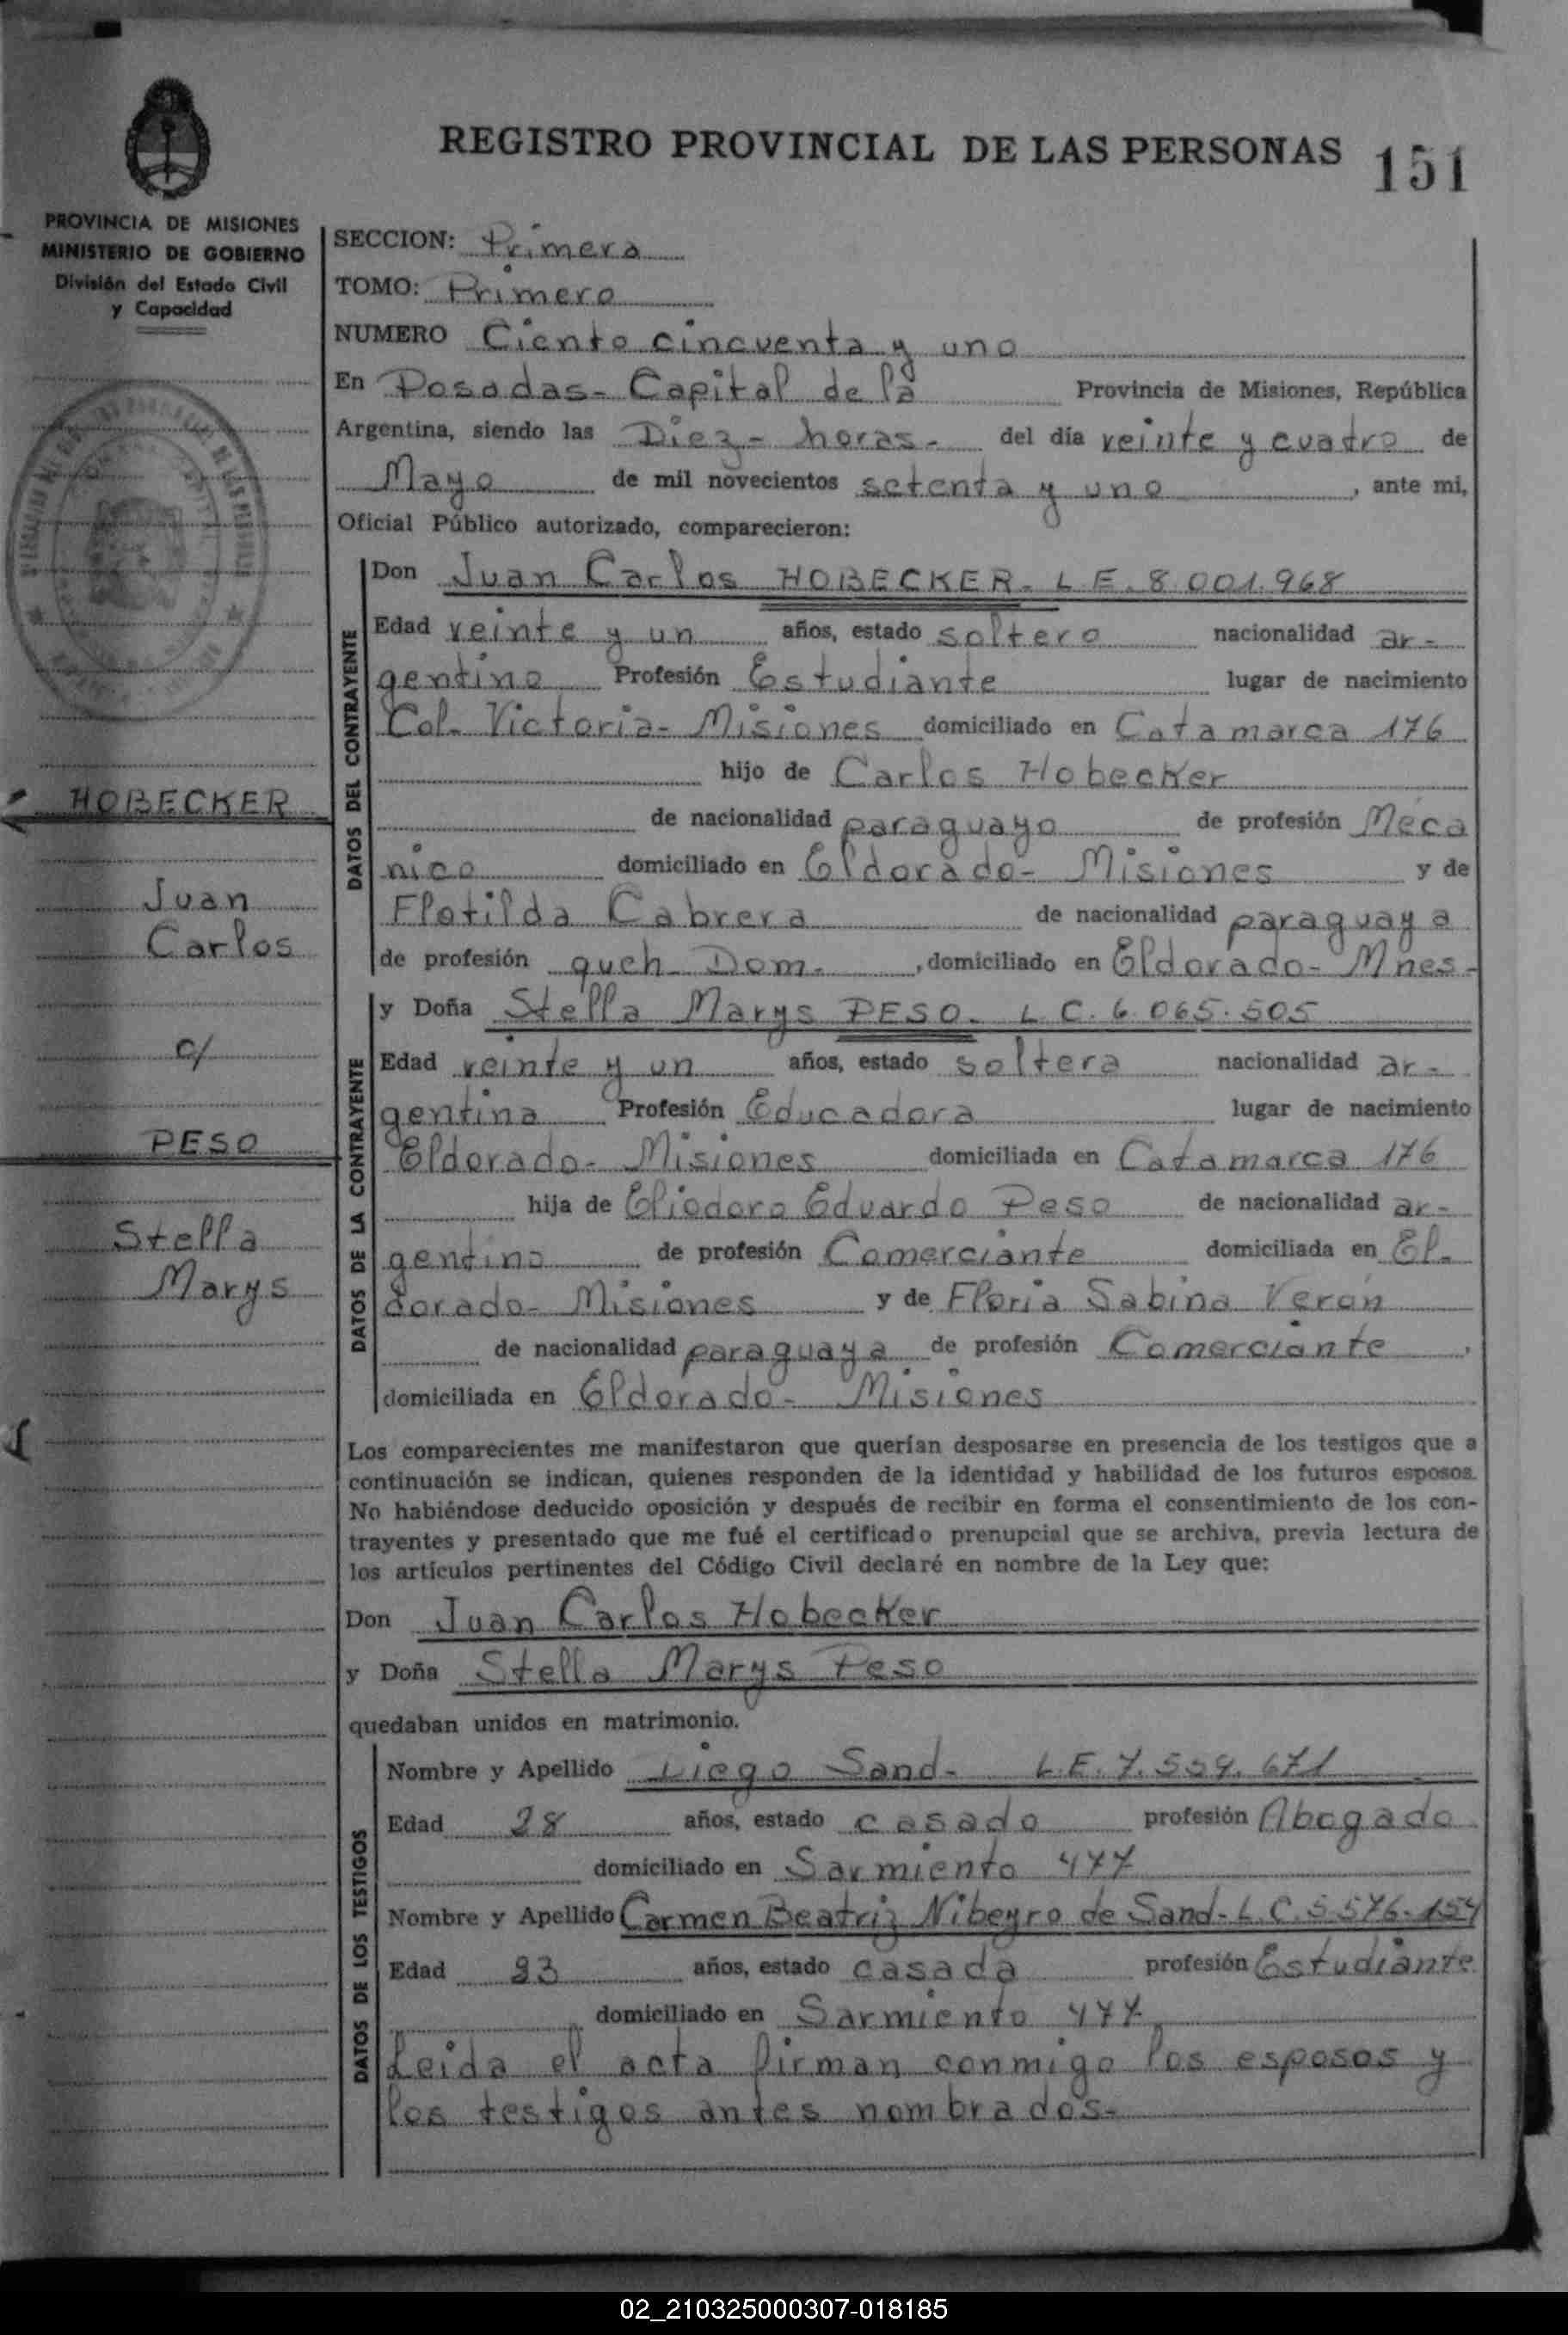 REGISTRO PROVINCIAL DE LAS PERSONAS 151
PROVINCIA DE MISIONES
MINISTERIO DE GOBIERNO
División del Estado Civil
y Capacidad
HOBECKER
Juan
Carlos
c/
PESO
Stella
Marys
SECCION: Primera
TOMO: Primero
NUMERO Ciento cincuenta y uno
En Posadas- Capital de la Provincia de Misiones, República
Argentina, siendo las Diez- horas- del día veinte y cuatro de
Mayo de mil novecientos setenta y uno, ante mi,
Oficial Público autorizado, comparecieron:
DATOS DEL CONTRAYENTE
Don Juan Carlos HOBECKER- L E. 8.001.968
Edad veinte y un años, estado soltero nacionalidad ar-
gentino Profesión Estudiante lugar de nacimiento
Col. Victoria- Misiones domiciliado en Catamarca 176
hijo de Carlos Hobecker
de nacionalidad paraguayo de profesión Mecá
nico domiciliado en Eldorado- Misiones y de
Flotilda Cabrera de nacionalidad paraguaya
de profesión queh- Dom., domiciliado en Eldorado- Mnes-
DATOS DE LA CONTRAYENTE
y Doña Stella Marys PESO- L C. 6.065.505
Edad veinte y un años, estado soltera nacionalidad ar-
gentina Profesión Educadora lugar de nacimiento
Eldorado- Misiones domiciliada en Catamarca 176
hija de Eliodoro Eduardo Peso de nacionalidad ar-
gentino de profesión Comerciante domiciliada en El-
dorado- Misiones y de Floria Sabina Verón
de nacionalidad paraguaya de profesión Comerciante,
domiciliada en Eldorado- Misiones
Los comparecientes me manifestaron que querían desposarse en presencia de los testigos que a
continuación se indican, quienes responden de la identidad y habilidad de los futuros esposos.
No habiéndose deducido oposición y después de recibir en forma el consentimiento de los con-
trayentes y presentado que me fué el certificado prenupcial que se archiva, previa lectura de
los artículos pertinentes del Código Civil declaré en nombre de la Ley que:
Don Juan Carlos Hobecker
y Doña Stella Marys Peso
quedaban unidos en matrimonio.
DATOS DE LOS TESTIGOS
Nombre y Apellido Diego Sand- L.E. 7.559.671
Edad 28 años, estado casado profesión Abogado
domiciliado en Sarmiento 477
Nombre y Apellido Carmen Beatriz Nibeyro de Sand- L.C. 5.576.154
Edad 23 años, estado casada profesión Estudiante
domiciliado en Sarmiento 477
Leida el acta firman conmigo los esposos y
los testigos antes nombrados-
02_210325000307-018185